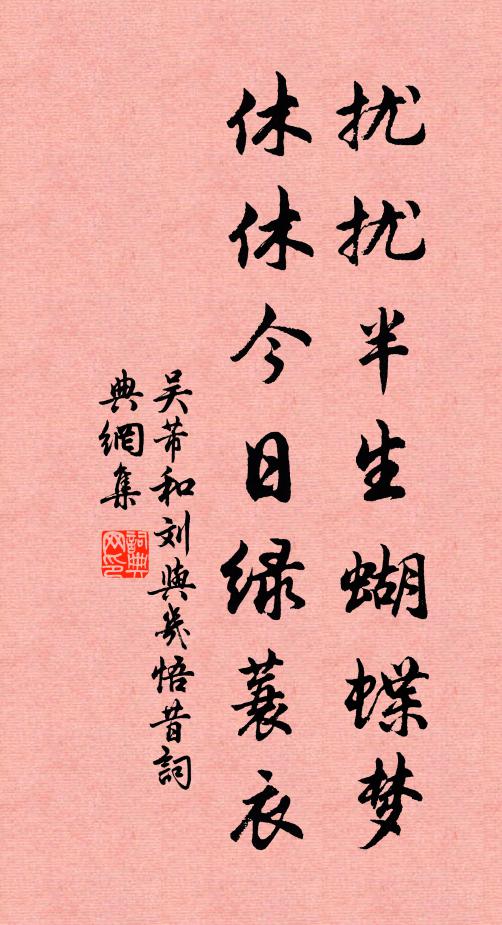 扰扰半生蝴蝶梦
休休今日绿蓑衣
吴芾和刘与几悟昔词
典網集
詞典
网印